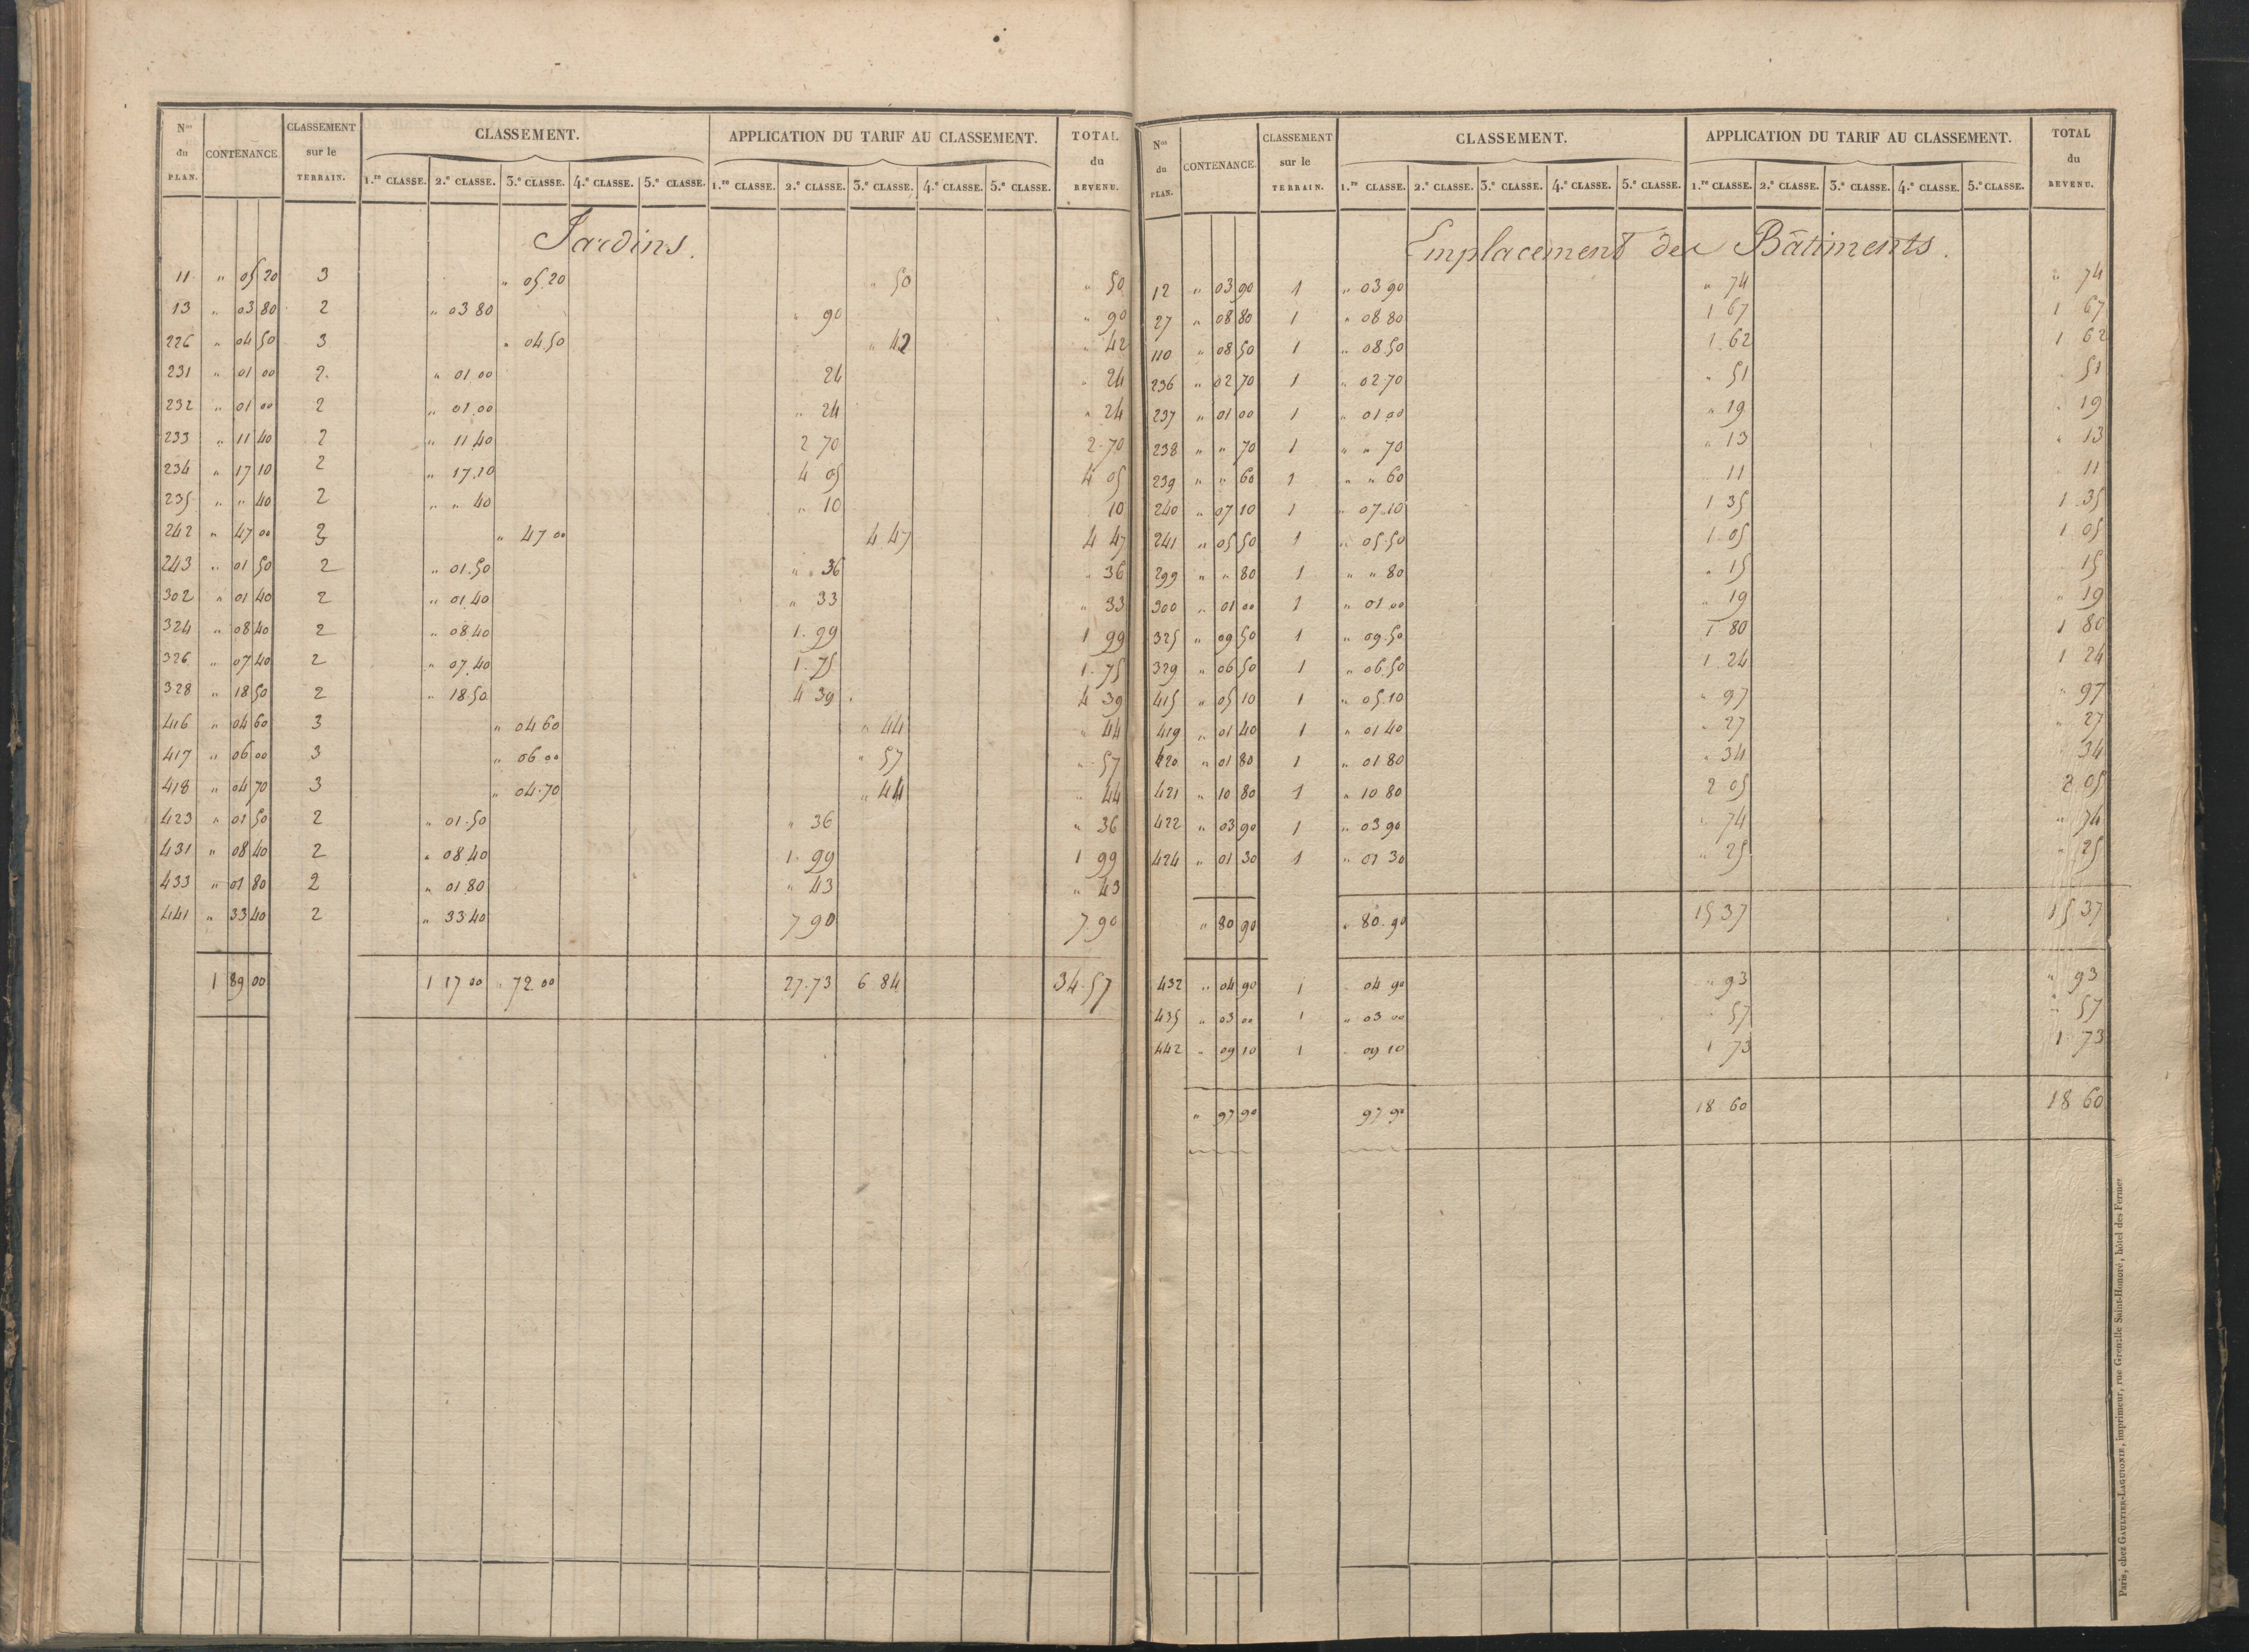 Nos du PLAN. CONTENANCE. CLASSEMENT sur le TERRAIN. CLASSEMENT. APPLICATION DU TARIF AU CLASSEMENT. TOTAL du REVENU.
1.re CLASSE. 2.e CLASSE. 3.e CLASSE. 4.e CLASSE. 5.e CLASSE. 1.re CLASSE. 2.e CLASSE. 3.e CLASSE. 4.e CLASSE. 5.e CLASSE.
Jardins.
11 " 05 20 3 " 05.20 " 50 " 50
13 " 03 80 2 " 03 80 " 90 " 90
226 " 04 50 3 " 04.50 " 42 " 42
231 " 01 00 2. " 01 00 24 " 24
232 " 01 00 2 " 01.00 " 24 " 24
233 " 11 40 2 " 11 40 2 70 2.70
234 " 17 10 2 " 17.10 4 05 4 05
235 " " 40 2 " " 40 " 10 10
242 " 47 00 3 " 47 00 4 47 4 47
243 " 01 50 2 " 01.50 " 36 " 36
302 " 01 40 2 " 01.40 " 33 " 33
324 " 08 40 2 " 08 40 1.99 1 99
326 " 07 40 2 " 07.40 1.75 1.75
328 " 18 50 2 " 18.50 4 39 4 39
416 " 04 60 3 " 04 60 " 44 " 44
417 " 06 00 3 " 06 00 " 57 " 57
418 " 04 70 3 " 04.70 " 44 " 44
423 " 01 50 2 " 01.50 " 36 " 36
431 " 08 40 2 " 08.40 1.99 1 99
433 " 01 80 2 " 01.80 " 43 " 43
441 " 33 40 2 " 33 40 7 90 7.90
1 89 00 1 17 00 " 72 00 27.73 6 84 34.57
Nos du PLAN. CONTENANCE. CLASSEMENT sur le TERRAIN. CLASSEMENT. APPLICATION DU TARIF AU CLASSEMENT. TOTAL du REVENU.
1.re CLASSE. 2.e CLASSE. 3.e CLASSE. 4.e CLASSE. 5.e CLASSE. 1.re CLASSE. 2.e CLASSE. 3.e CLASSE. 4.e CLASSE. 5.e CLASSE.
Emplacement des Bâtiments.
12 " 03 90 1 " 03 90 " 74 " 74
27 " 08 80 1 " 08 80 1 67 1 67
110 " 08 50 1 " 08.50 1.62 1 62
236 " 02 70 1 " 02.70 " 51 " 51
237 " 01 00 1 " 01 00 " 19 " 19
238 " " 70 1 " " 70 " 13 " 13
239 " " 60 1 " " 60 11 11
240 " 07 10 1 " 07.10 1 35 1.35
241 " 05 50 1 " 05.50 1.05 1 05
299 " " 80 1 " " 80 " 15 15
300 " 01 00 1 " 01 00 " 19 " 19
325 " 09 50 1 " 09.50 1 80 1 80
329 " 06 50 1 " 06.50 1.24 1 24
415 " 05 10 1 " 05.10 " 97 " 97
419 " 01 40 1 " 01 40 " 27 " 27
420 " 01 80 1 " 01 80 " 34 34
421 " 10 80 1 " 10 80 2 05 2 05
422 " 03 90 1 " 03 90 " 74 " 74
424 " 01 30 1 " 01 30 " 25 " 25
" 80 90 " 80.90 15 37 15 37
432 " 04 90 1 04 90 " 93 " 93
435 " 03 00 1 " 03 00 57 " 57
442 " 09 10 1 09 10 1 73 1 73
" 97 90 97 90 18 60 18 60
Paris, chez GAULTIER-LAGUIONIE, imprimeur, rue Grenelle Saint-Honoré, hôtel des Fermes